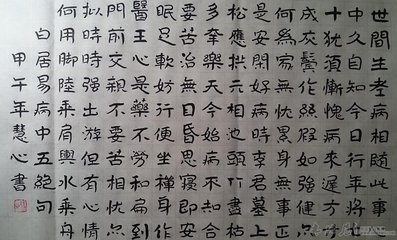 世間生老病相随此事心
中久自知今日行年将七
十犹須慚愧病来遲方寸
成灰鬢作絲假如强健亦
何為家無忧累身無事正
是安閑好病時李君墓上
松應拱元相池頭竹盡枯
多幸樂天今始病不知合
要苦治無目昏思寢即安
眠足軟妨行便坐禪身作
醫王心是藥不勞和扁到
門前交親不要苦相忧亦
拟時時强出游但有心情
何用脚陸乘肩輿水乘舟
白居易病中五絕句
甲午年慧心書